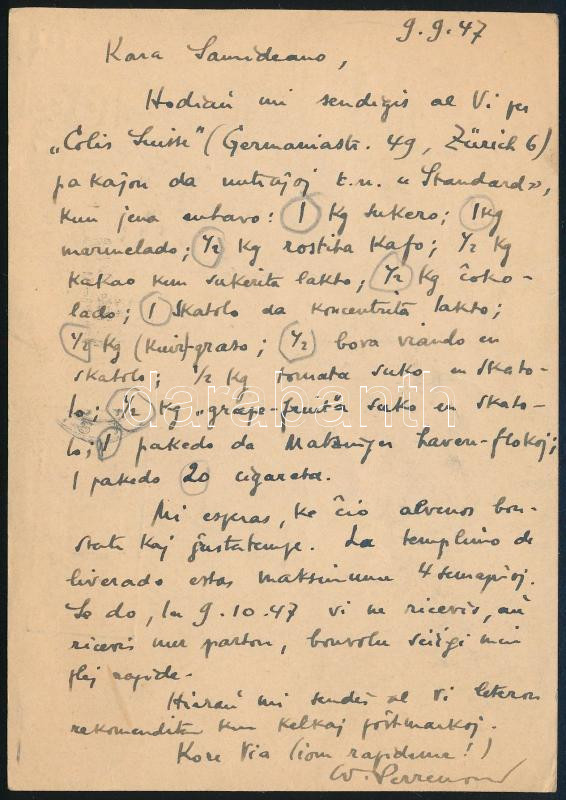 9.9.47
Kara Samideano,
Hodiaŭ mi sendigis al Vi per
„Colis Suisse" (Germaniastr. 49, Zürich 6)
pakaĵon da nutraĵoj t.n. «Standard»,
kun jena enhavo: 1 Kg sukero; 1 Kg
marmelado; 1/2 Kg rostita Kafo; 1/2 Kg
kakao kun sukerita lakto; 1/2 Kg ĉoko-
lado; 1 skatolo da koncentrita lakto;
1/2 Kg (kuir)-graso; 1/2 bova viando en
skatolo; 1/2 Kg tomata suko en skato-
lo; 1/2 Kg „grape-fruit"a suko en skato-
lo; 1 pakedo da Matzinger haven-flokoj;
1 pakedo 20 cigareta.
Mi esperas, ke ĉio alvenos bon-
state kaj ĝustatempe. La templimo de
liverado estas maksimume 4 semajnoj.
Se do, la 9.10.47 vi ne ricevis, aŭ
ricevis nur parton, bonvolu sciigi min
plej rapide.
Hieraŭ mi sendis al Vi leteron
rekomenditan kun kelkaj poŝtmarkoj.
Kore Via (iom rapideme!)
W. Perrenoud
darabanth